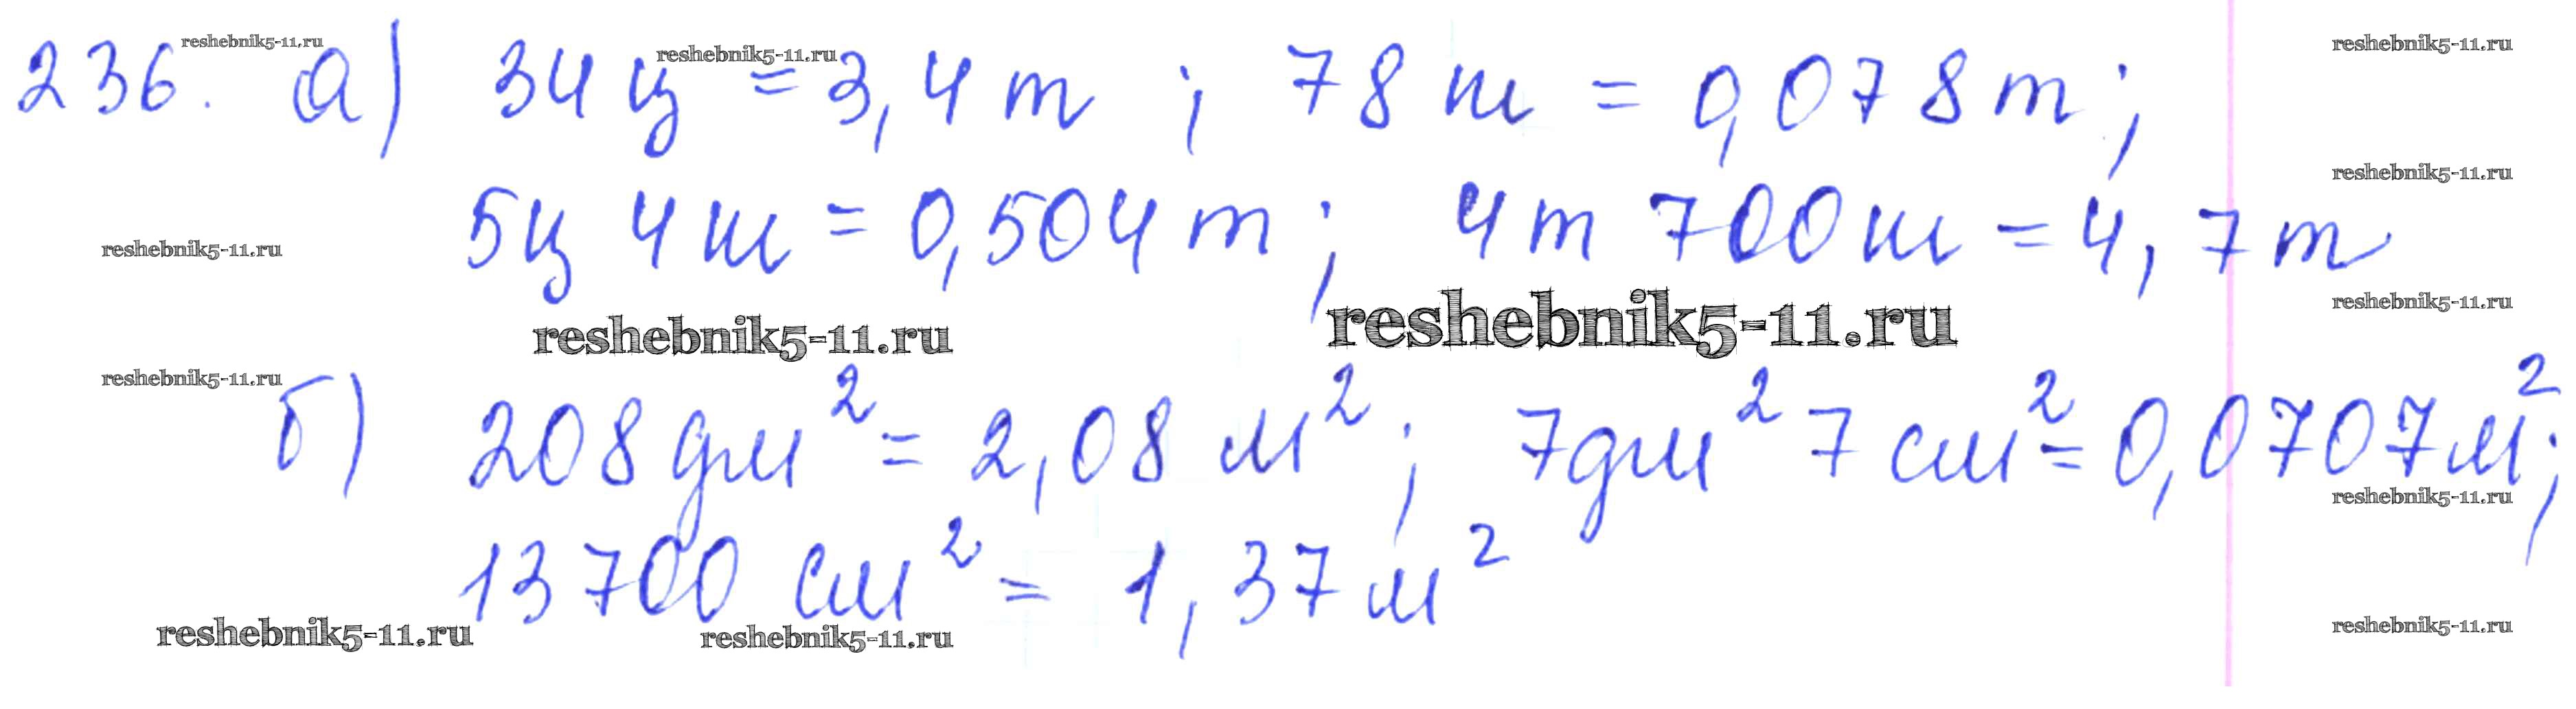 reshebnik5-11.ru reshebnik5-11.ru reshebnik5-11.ru
236. а) 34 ц = 3,4 т ; 78 кг = 0,078 т;
reshebnik5-11.ru
5ц 4 кг = 0,504 т; 4т 700 кг = 4,7 т
reshebnik5-11.ru
reshebnik5-11.ru
reshebnik5-11.ru reshebnik5-11.ru
reshebnik5-11.ru
б) 208 дм² = 2,08 м²; 7дм² 7 см² = 0,0707 м²;
reshebnik5-11.ru
13700 см² = 1,37 м²
reshebnik5-11.ru reshebnik5-11.ru reshebnik5-11.ru